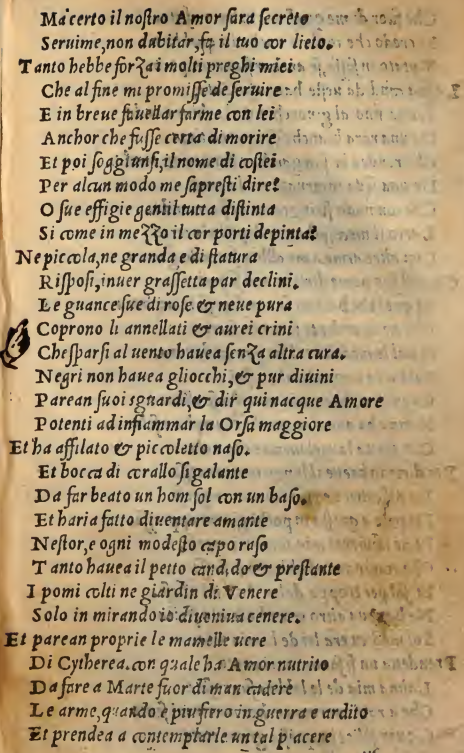 Ma certo il nostro Amor sara secreto
Seruime, non dubitar, fa il tuo cor lieto.
Tanto hebbe forza i molti preghi miei
Che al fine mi promisse de seruire
E in breue fauellar farme con lei
Anchor che fusse certa di morire
Et poi soggiunsi, il nome di costei
Per alcun modo me sapresti dire?
O sue effigie gentil tutta distinta
Si come in mezzo il cor porti depinta?
Ne piccola, ne granda e di statura
Risposi, inuer grassetta par declini.
Le guance sue di rose & neue pura
Coprono li annellati & aurei crini
Che sparsi al uento hauea senza altra cura.
Negri non hauea gliocchi, & pur diuini
Parean suoi sguardi, & dir qui nacque Amore
Potenti ad infiammar la Orsa maggiore
Et ha affilato & piccoletto naso.
Et bocca di corallo si galante
Da far beato un hom sol con un baso.
Et haria fatto diuentare amante
Nestor, e ogni modesto capo raso
Tanto hauea il petto candido & prestante
I pomi colti ne giardin di Venere
Solo in mirando io diueniua cenere.
Et parean proprie le mamelle uere
Di Cytherea. con quale ha Amor nutrito
Da fare a Marte fuor di man cadere
Le arme, quando è piu fiero in guerra e ardito
Et prendea a contemplarle un tal piacere